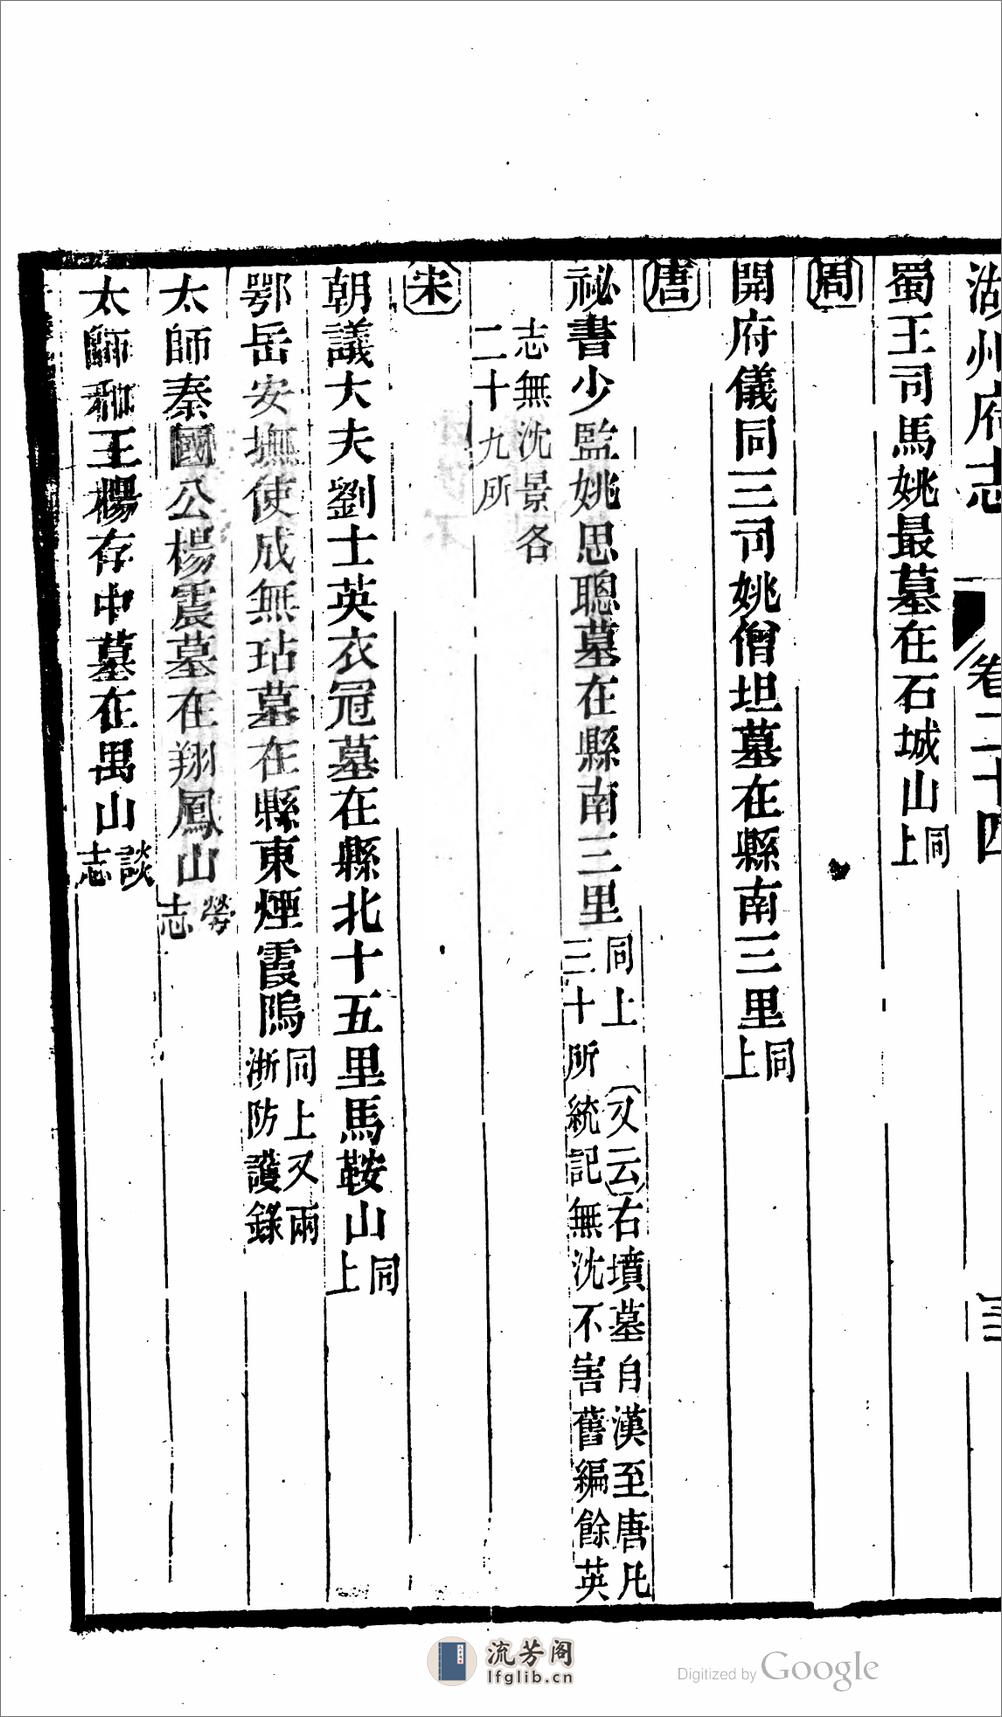 湖州府志 卷二十四 三
蜀王司馬姚最墓在石城山同上
周
開府儀同三司姚僧坦墓在縣南三里同上
唐
祕書少監姚思聰墓在縣南三里同上（又云）右墳墓自漢至唐凡三十所統記無沈不害舊編餘英
志無沈景各二十九所
宋
朝議大夫劉士英衣冠墓在縣北十五里馬鞍山同上
鄂岳安撫使成無玷墓在縣東煙霞隖同上又兩浙防護錄
太師秦國公楊震墓在翔鳳山勞志
太師和王楊存中墓在禺山談志
流芳阁
lfglib.cn
Digitized by Google